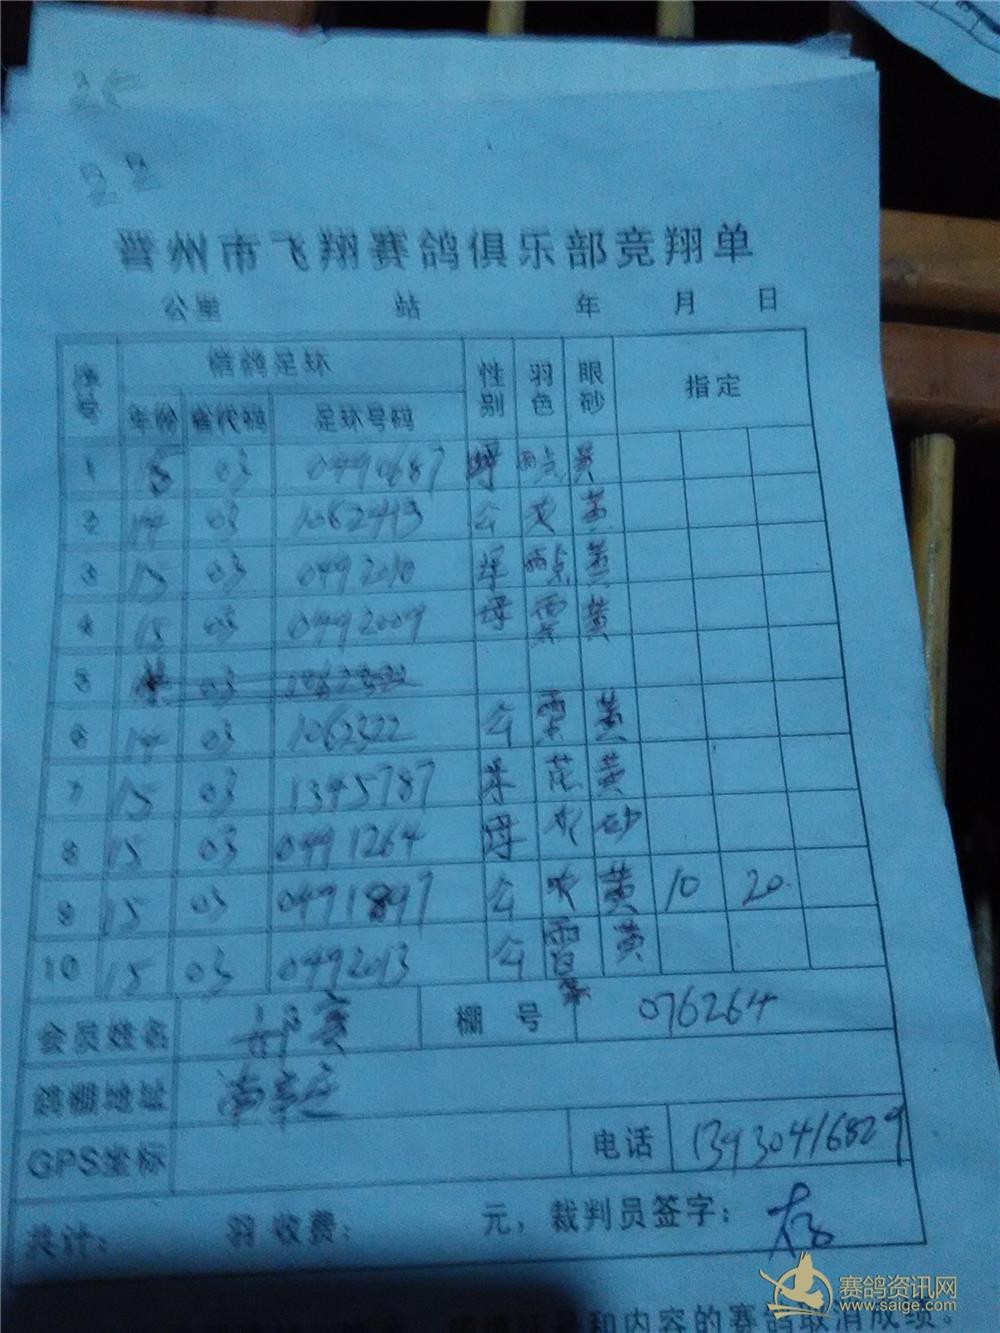 25
22
晋州市飞翔赛鸽俱乐部竞翔单
公里 站 年 月 日
序号 信鸽足环 性别 羽色 眼砂 指定
年份 省代码 足环号码
1 15 03 0490687 母 雨点 黄
2 14 03 1062413 公 灰 黄
3 15 03 0492010 母 雨点 黄
4 15 03 0492009 母 雨 黄
5 03 1062322
6 14 03 1062322 公 黄
7 15 03 1345787 母 花 黄
8 15 03 0491264 母 灰 砂
9 15 03 0491897 公 灰 黄 10 20
10 15 03 0492013 公 雨白条 黄
会员姓名 棚号 076264
鸽棚地址 南辛庄
GPS坐标 电话 13930416829
共计: 羽 收费: 元, 裁判员签字:
和内容的赛鸽取消成绩。
赛鸽资讯网
www.saige.com